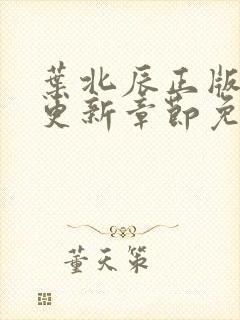 葉北辰正版
更新章節免
董天策